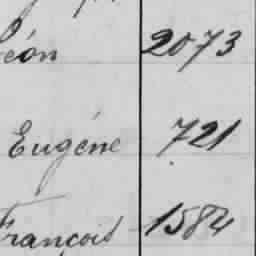 Léon 2073
Eugène 721
François 1584